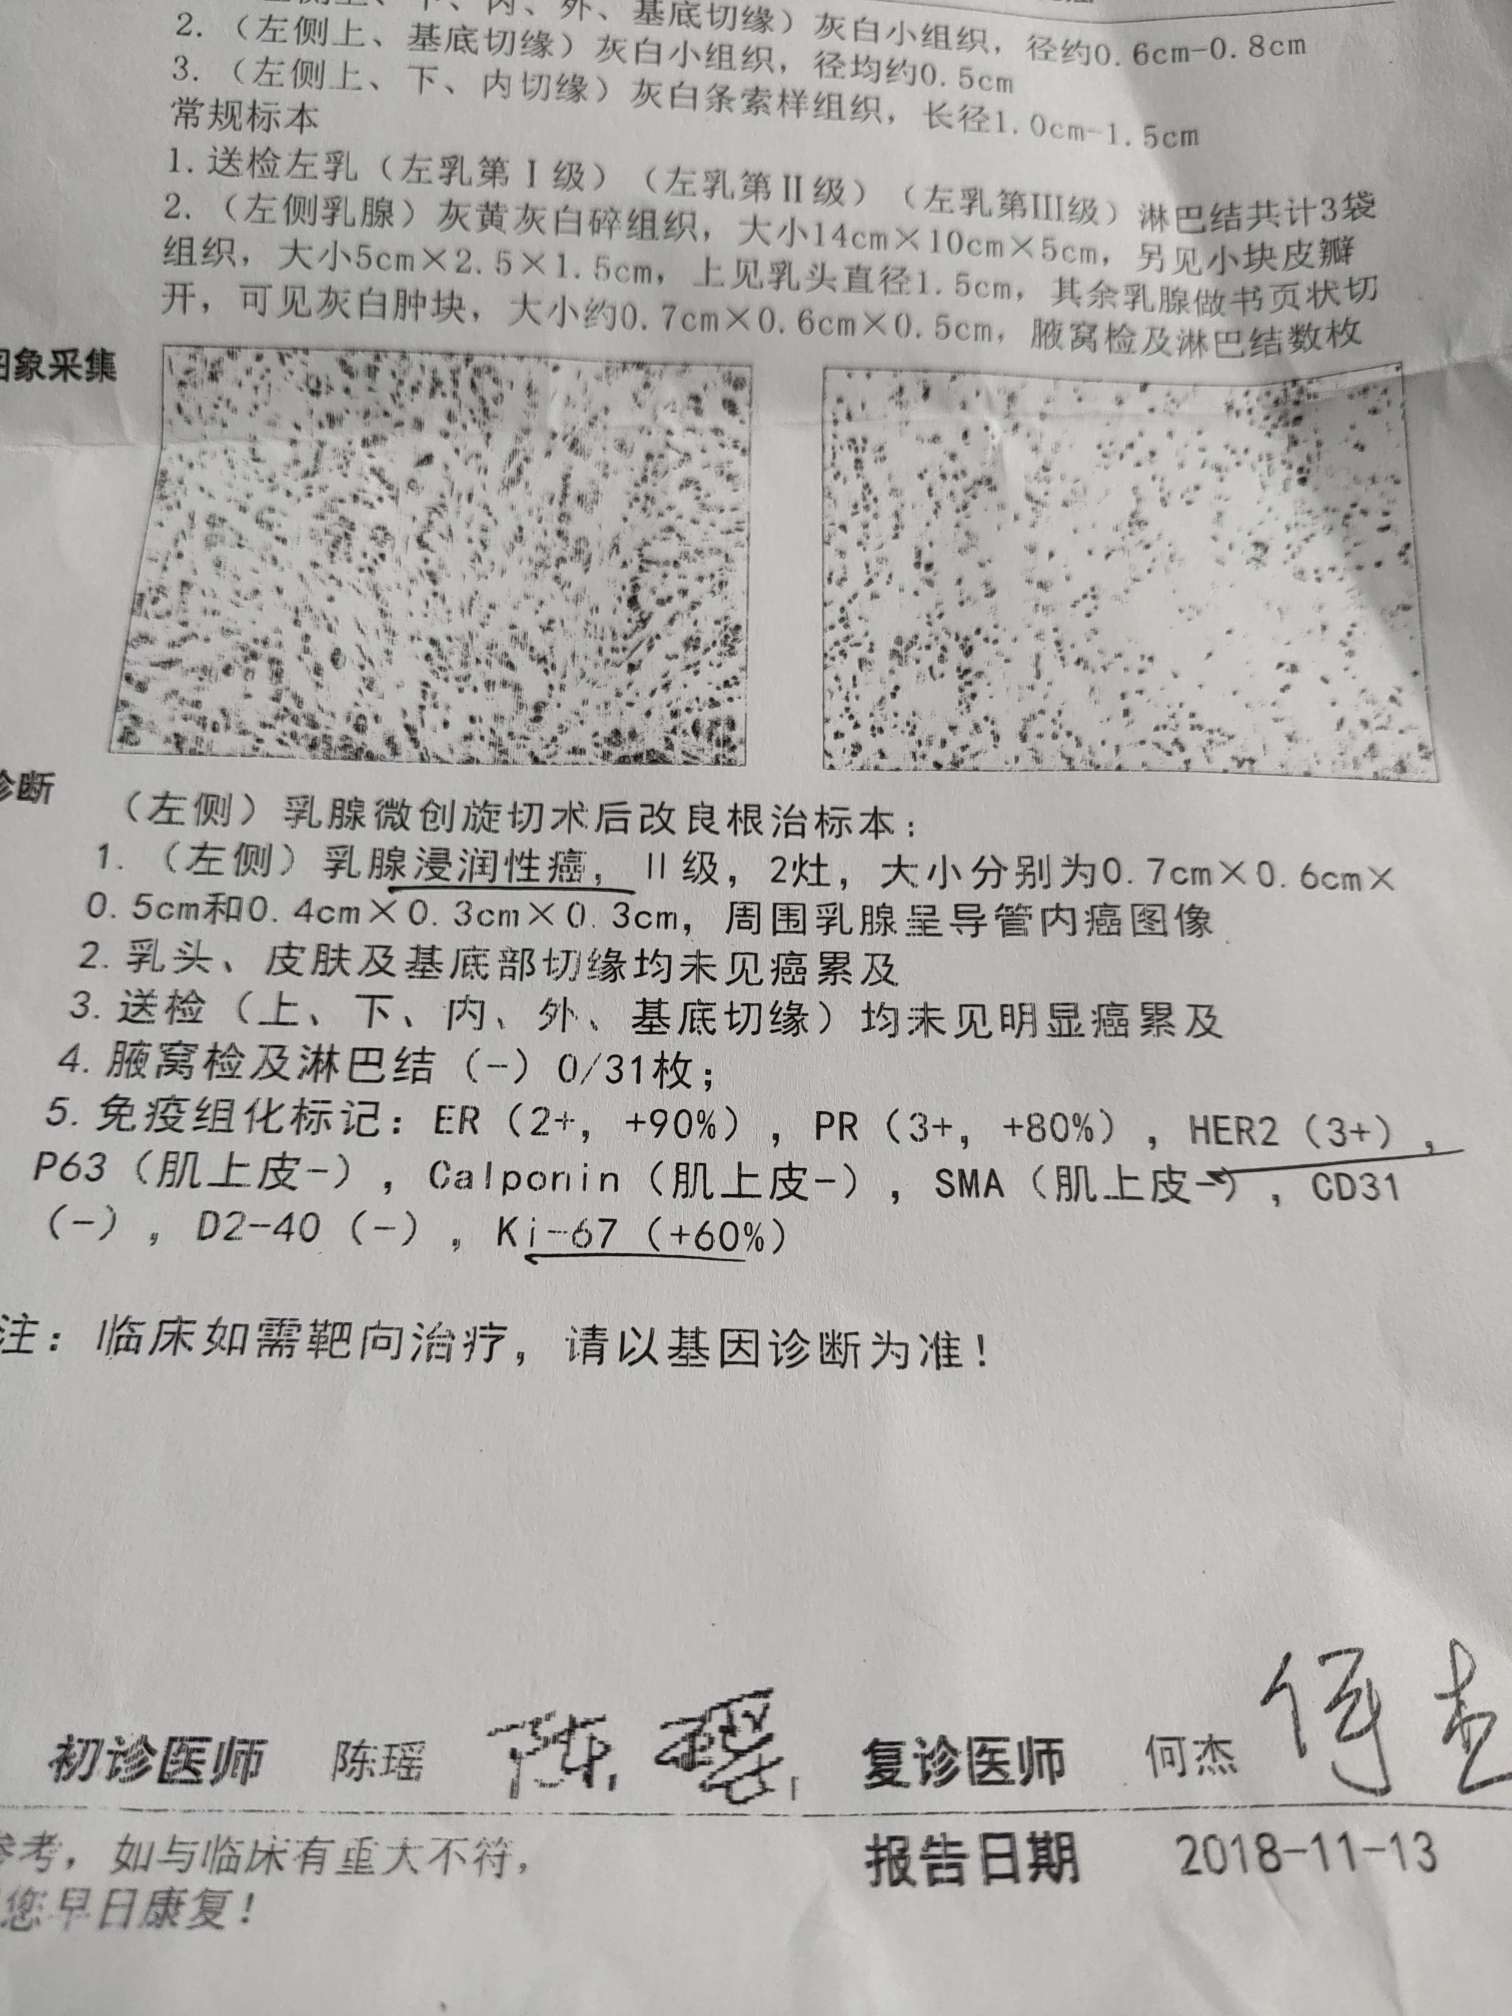 基底切缘）灰白小组织，径约0.6cm-0.8cm
2.（左侧上、基底切缘）灰白小组织，径均约0.5cm
3.（左侧上、下、内切缘）灰白条索样组织，长径1.0cm-1.5cm
常规标本
1.送检左乳（左乳第Ⅰ级）（左乳第Ⅱ级）（左乳第III级）淋巴结共计3袋
2.（左侧乳腺）灰黄灰白碎组织，大小14cm×10cm×5cm，另见小块皮瓣
组织，大小5cm×2.5×1.5cm，上见乳头直径1.5cm，其余乳腺做书页状切
开，可见灰白肿块，大小约0.7cm×0.6cm×0.5cm，腋窝检及淋巴结数枚
图象采集
诊断
（左侧）乳腺微创旋切术后改良根治标本：
1.（左侧）乳腺浸润性癌，II级，2灶，大小分别为0.7cm×0.6cm×
0.5cm和0.4cm×0.3cm×0.3cm，周围乳腺呈导管内癌图像
2.乳头、皮肤及基底部切缘均未见癌累及
3.送检（上、下、内、外、基底切缘）均未见明显癌累及
4.腋窝检及淋巴结（-）0/31枚；
5.免疫组化标记：ER（2+，+90%），PR（3+，+80%），HER2（3+），
P63（肌上皮-），Calponin（肌上皮-），SMA（肌上皮-），CD31
（-），D2-40（-），Ki-67（+60%）
注：临床如需靶向治疗，请以基因诊断为准！
初诊医师 陈瑶 陈瑶 复诊医师 何杰 何杰
参考，如与临床有重大不符， 报告日期 2018-11-13
您早日康复！